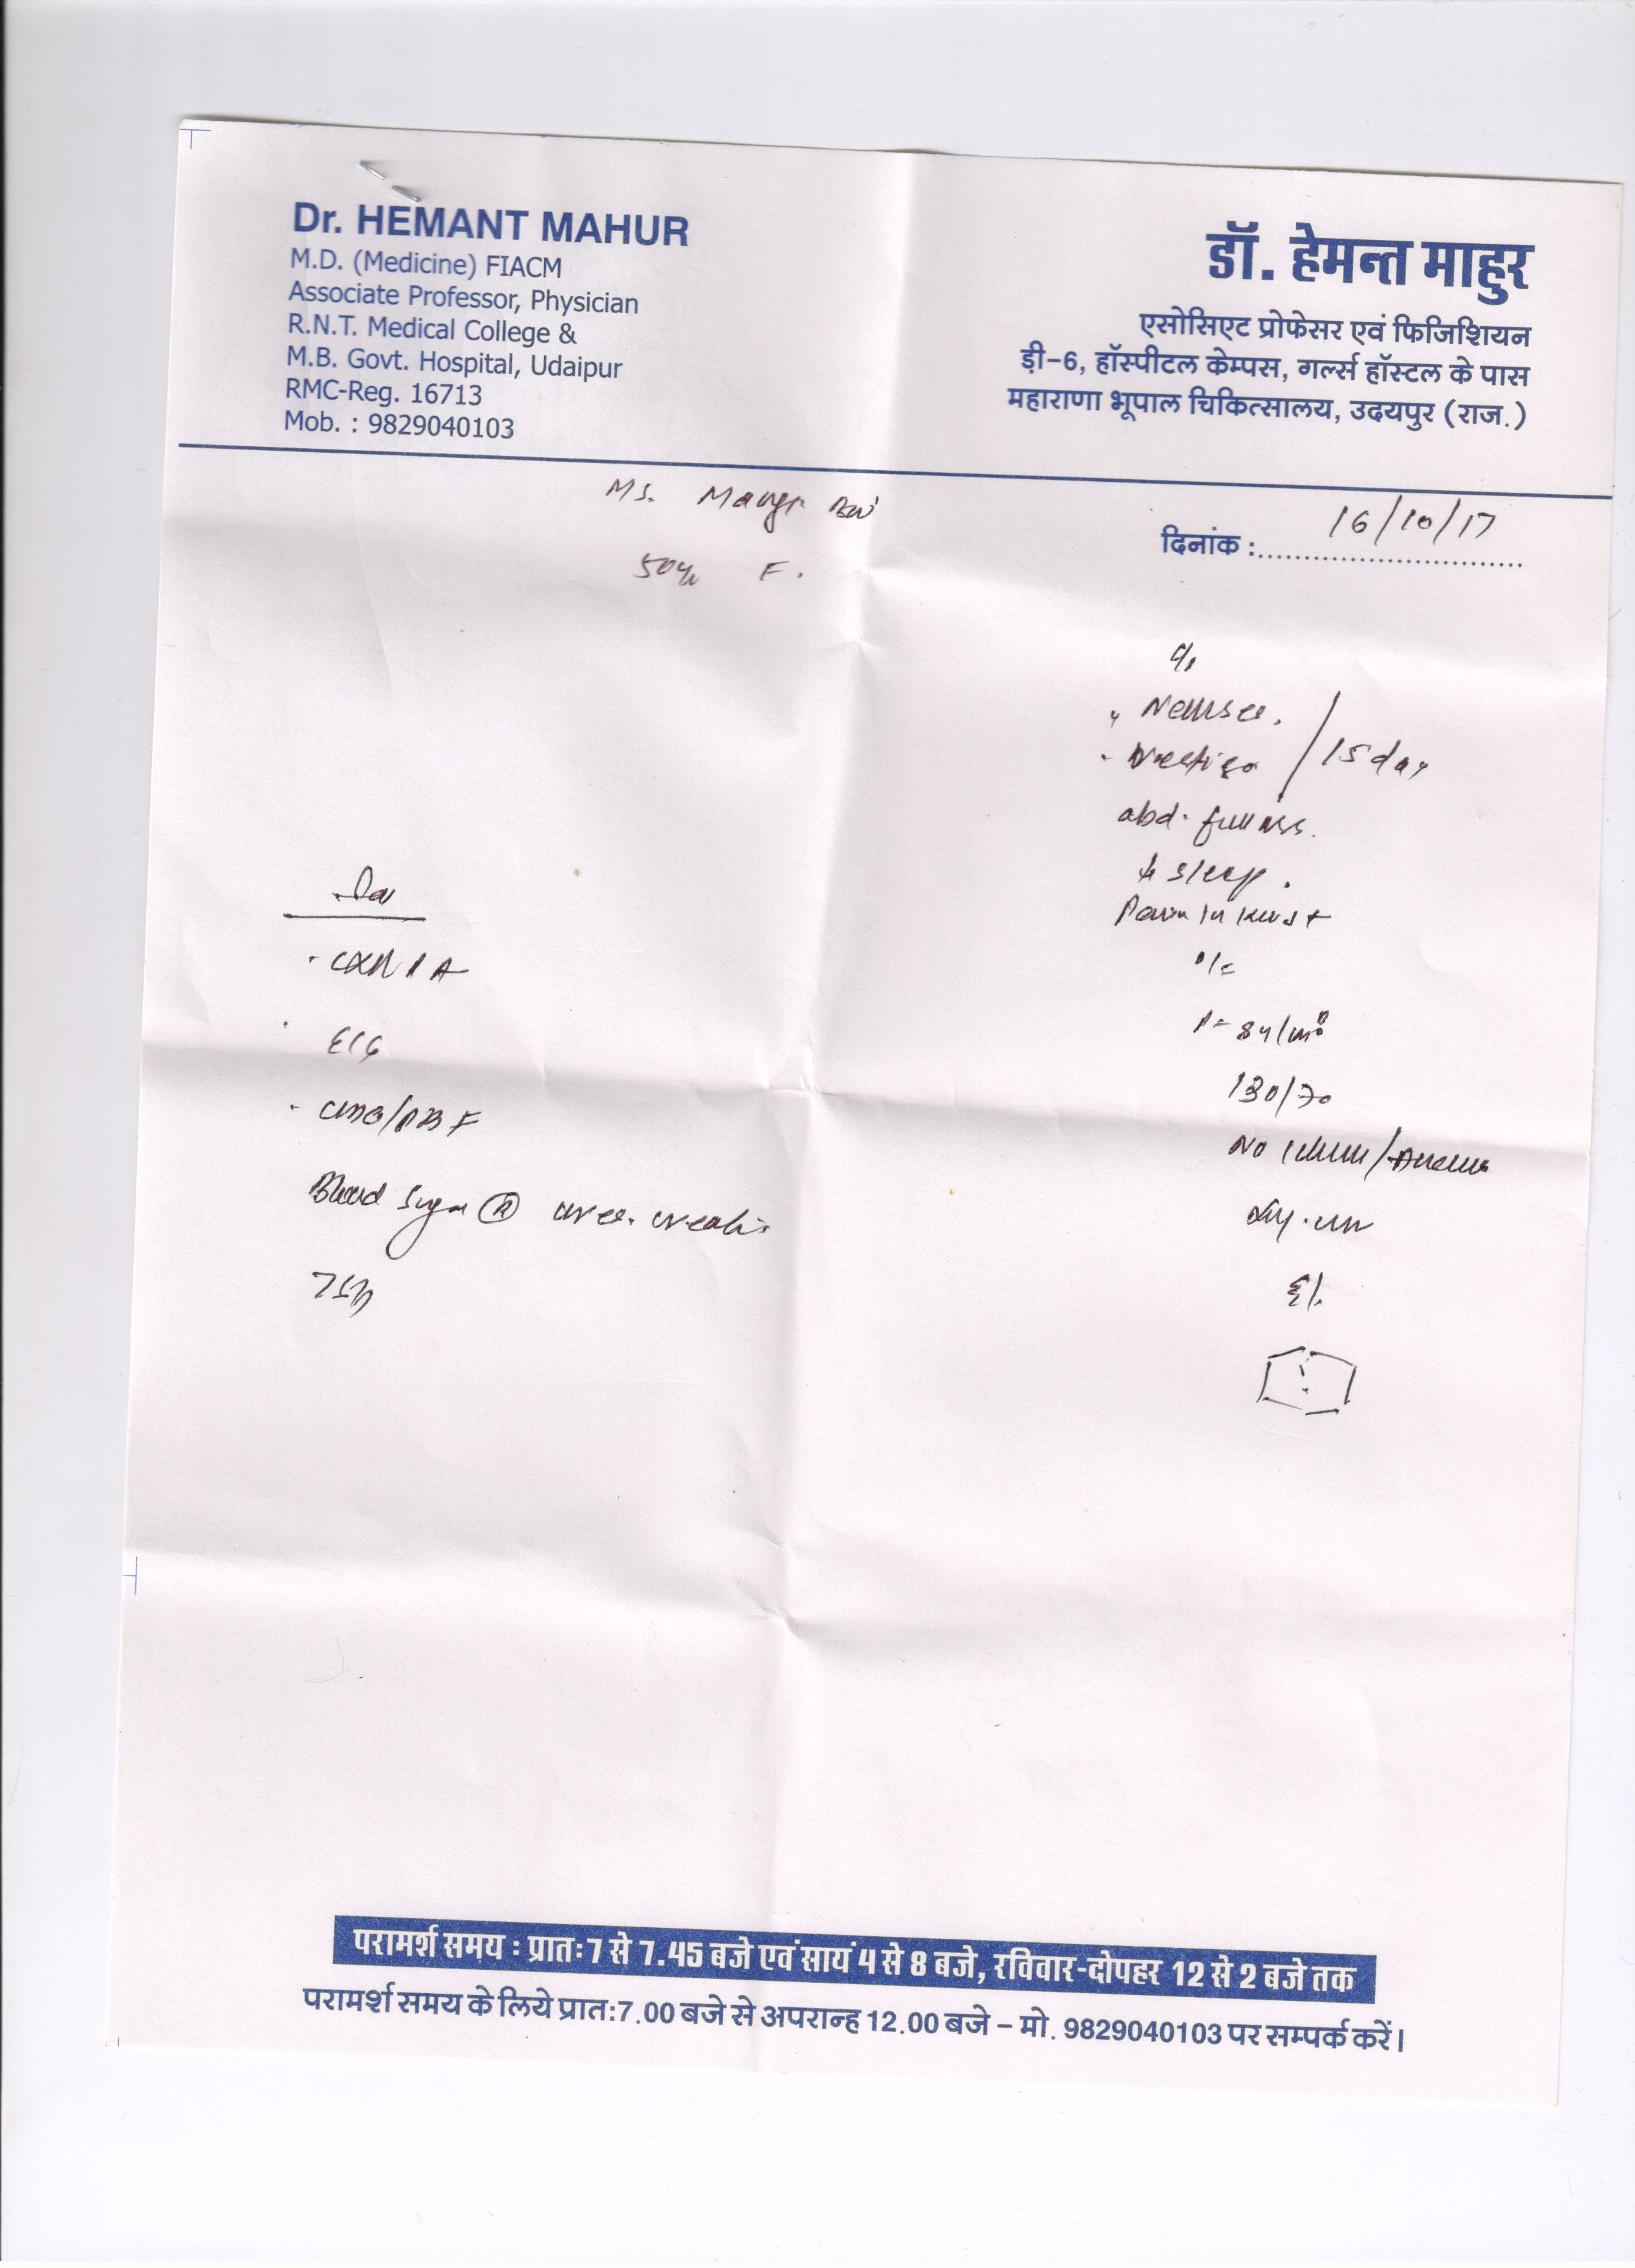 Dr. HEMANT MAHUR
M.D. (Medicine) FIACM
Associate Professor, Physician
R.N.T. Medical College &
M.B. Govt. Hospital, Udaipur
RMC-Reg. 16713
Mob. : 9829040103
डॉ. हेमन्त माहुर
एसोसिएट प्रोफेसर एवं फिजिशियन
डी-6, हॉस्पीटल केम्पस, गर्ल्स हॉस्टल के पास
महाराणा भूपाल चिकित्सालय, उदयपुर (राज.)
Ms.
F.
दिनांक : 16/10/17
c/o
Nausea.
Vertigo / 15 day
abd. fullness.
↓ sleep.
Pain in
o/e
P= 84/m
130/70
No
CXR PA
ECG
CBC/PBF
Blood Sugar (R) urea. creatin
TSH
परामर्श समय : प्रातः 7 से 7.45 बजे एवं सायं 4 से 8 बजे, रविवार-दोपहर 12 से 2 बजे तक
परामर्श समय के लिये प्रात:7.00 बजे से अपरान्ह 12.00 बजे – मो. 9829040103 पर सम्पर्क करें।